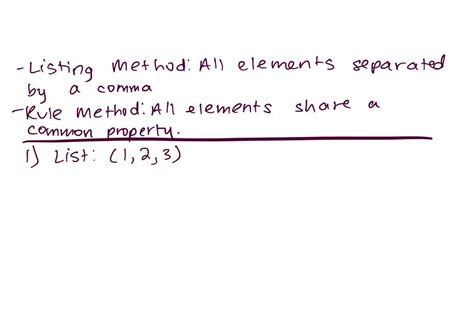 - Listing method: All elements separated
by a comma
- Rule method: All elements share a
common property.
1) List: (1, 2, 3)